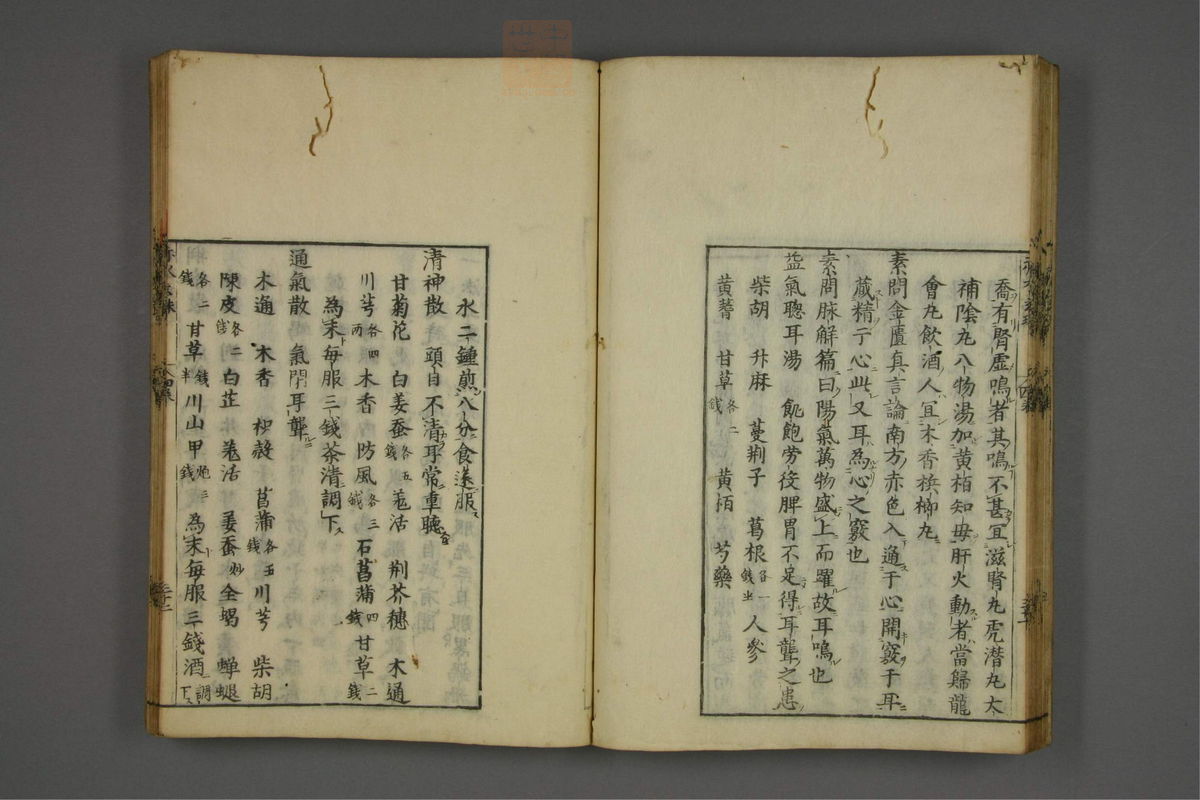 喬有腎虛鳴者其鳴不甚宜滋腎丸虎潛丸大
補陰丸八物湯加黃栢知母肝火動者當歸龍
會丸飲酒人宜木香檳榔丸
素問金匱真言論南方赤色入通于心開竅于耳
藏精于心此又耳為心之竅也
素問脉解篇曰陽氣萬物盛上而躍故耳鳴也
益氣聰耳湯　飢飽勞役脾胃不足得耳聾之患
柴胡　升麻　蔓荊子　葛根各一錢半　人參
黃蓍　甘草各二錢　黃栢　芍藥
水二鍾煎八分食遠服
清神散　頭目不清耳常重聽
甘菊花　白姜蚕各五錢　羌活　荊芥穗　木通
川芎各四兩　木香　防風各三錢　石菖蒲四錢　甘草二錢
為末每服三錢茶清調下
通氣散　氣閉耳聾
木通　木香　枳殼　菖蒲各五錢　川芎　柴胡
陳皮各二錢　白芷　羌活　姜蚕炒　全蝎　蟬蛻
各二錢　甘草錢半　川山甲炮三錢　為末每服三錢酒調下